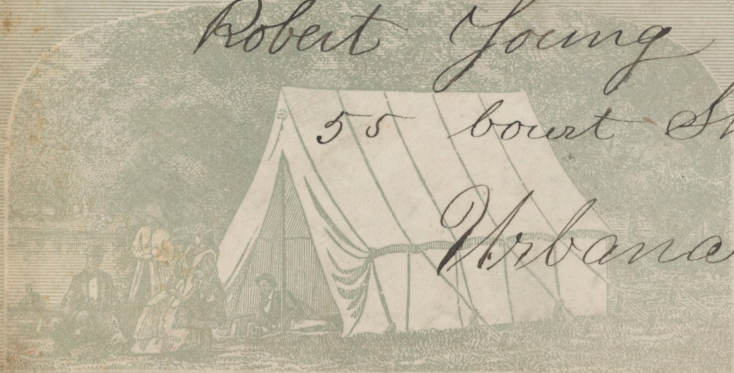 Robert Young
55 Court St
Urbana